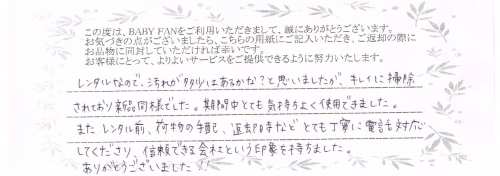 この度は、BABY FANをご利用いただきまして、誠にありがとうございます。
お気づきの点がございましたら、こちらの用紙にご記入いただき、ご返却の際に
お品物に同封していただければ幸いです。
お客様にとって、よりよいサービスをご提供できるように努力いたします。
レンタルなので、汚れが多少はあるかな？と思いましたが、キレイに掃除
されており新品同様でした。期間中とても気持ちよく使用できました。
また レンタル前、荷物の手配、返却時など とても丁寧に電話も対応
してくださり、信頼できる会社という印象を持ちました。
ありがとうございました